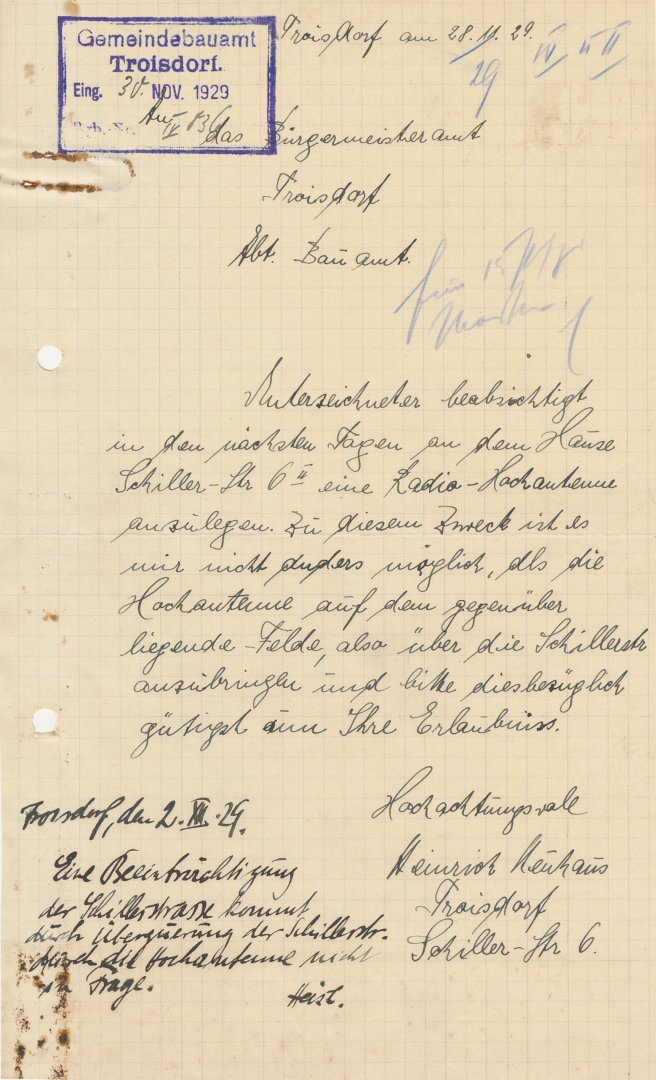 Gemeindebauamt
Troisdorf.
Eing. 30. NOV. 1929
Troisdorf am 28.11.29.
29 IV II
An
das Bürgermeisteramt
Troisdorf
Abt. Bauamt.
Unterzeichneter beabsichtigt
in den nächsten Tagen an dem Hause
Schiller-Str 6 II eine Radio-Hochantenne
anzulegen. Zu diesem Zweck ist es
mir nicht anders möglich, als die
Hochantenne auf dem gegenüber
liegende Felde, also über die Schillerstr
anzubringen und bitte diesbezüglich
gütigst um Ihre Erlaubniss.
Hochachtungsvoll
Heinrich Neuhaus
Troisdorf
Schiller-Str 6.
Troisdorf, den 2. XII. 29.
Eine Beeinträchtigung
der Schillerstrasse kommt
durch Überquerung der Schillerstr.
durch die Hochantenne nicht
in Frage.
Heist.